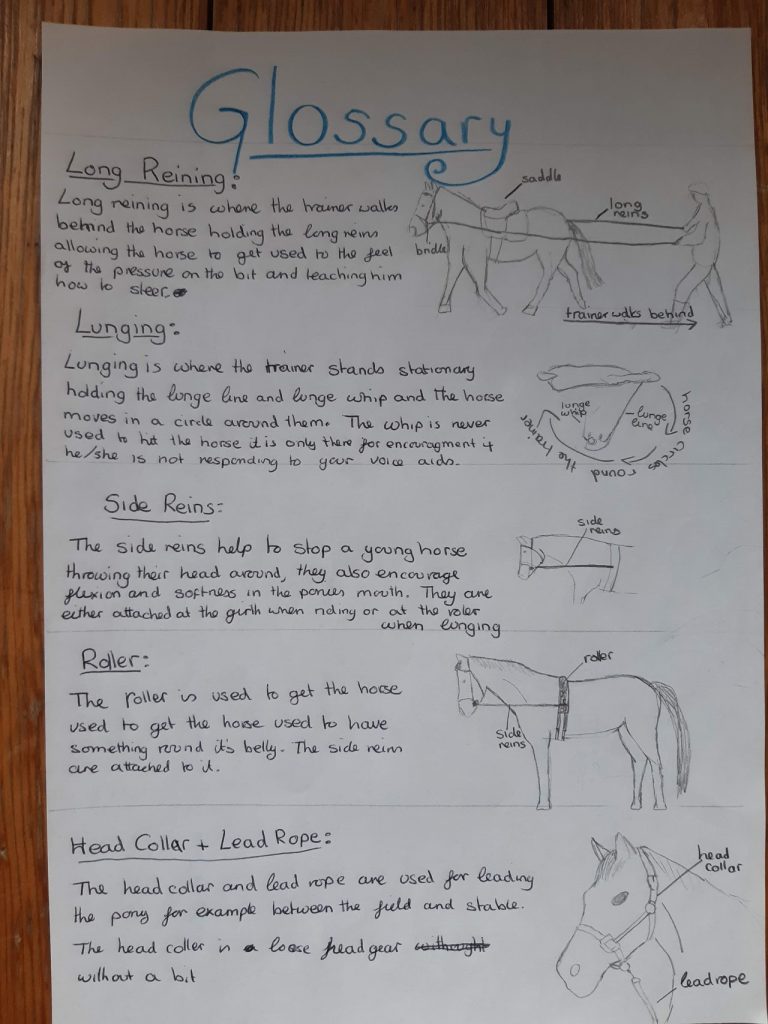 Glossary
Long Reining:
Long reining is where the trainer walks
behind the horse holding the long reins
allowing the horse to get used to the feel
of the pressure on the bit and teaching him
how to steer.
saddle
long
reins
bridle
trainer walks behind
Lunging:
Lunging is where the trainer stands stationary
holding the lunge line and lunge whip and the horse
moves in a circle around them. The whip is never
used to hit the horse it is only there for encouragment if
he/she is not responding to your voice aids.
lunge
whip
lunge
line
horse circles round the trainer
Side Reins:
The side reins help to stop a young horse
throwing their head around, they also encourage
flexion and softness in the ponies mouth. They are
either attached at the girth when riding or at the roler
when lunging
side
reins
Roller:
The roller is used to get the horse
used to get the horse used to have
something round it's belly. The side reins
are attached to it.
roller
side
reins
Head Collar + Lead Rope:
The head collar and lead rope are used for leading
the pony for example between the field and stable.
The head coller is a loose head gear
without a bit
head
collar
lead rope